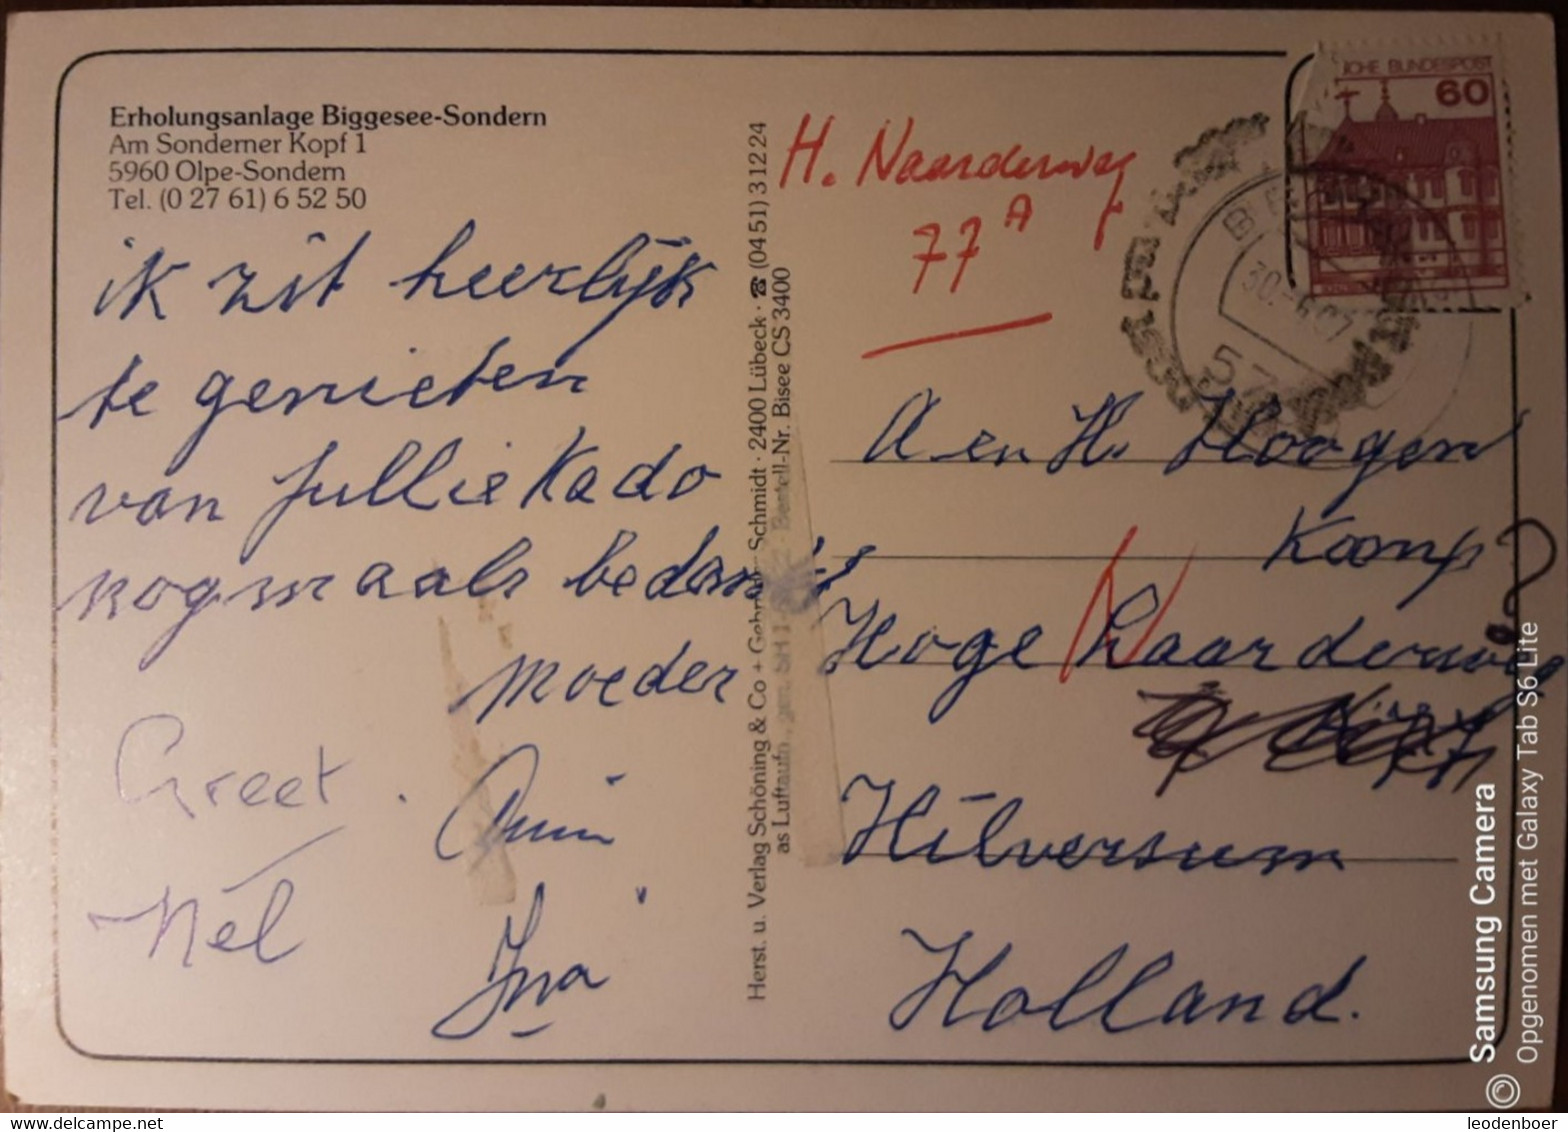 Erholungsanlage Biggesee-Sondern
Am Sonderner Kopf 1
5960 Olpe-Sondern
Tel. (0 27 61) 6 52 50
ik zit heerlijk
te genieten
van jullie Kado
nogmaals bedankt
moeder
Greet.
Nel
Ina
Herst. u. Verlag Schöning & Co + Gebrüder Schmidt · 2400 Lübeck · ☎ (0451) 31224
as Luftaufn. gen. SH Bestell-Nr. Bisee CS 3400
H. Naarderweg
77A
CHE BUNDESPOST
60
A en H. Hoogen
Kamp
Hoge Naarderweg
?
Hilversum
Holland.
Samsung Camera
Opgenomen met Galaxy Tab S6 Lite
leodenboer